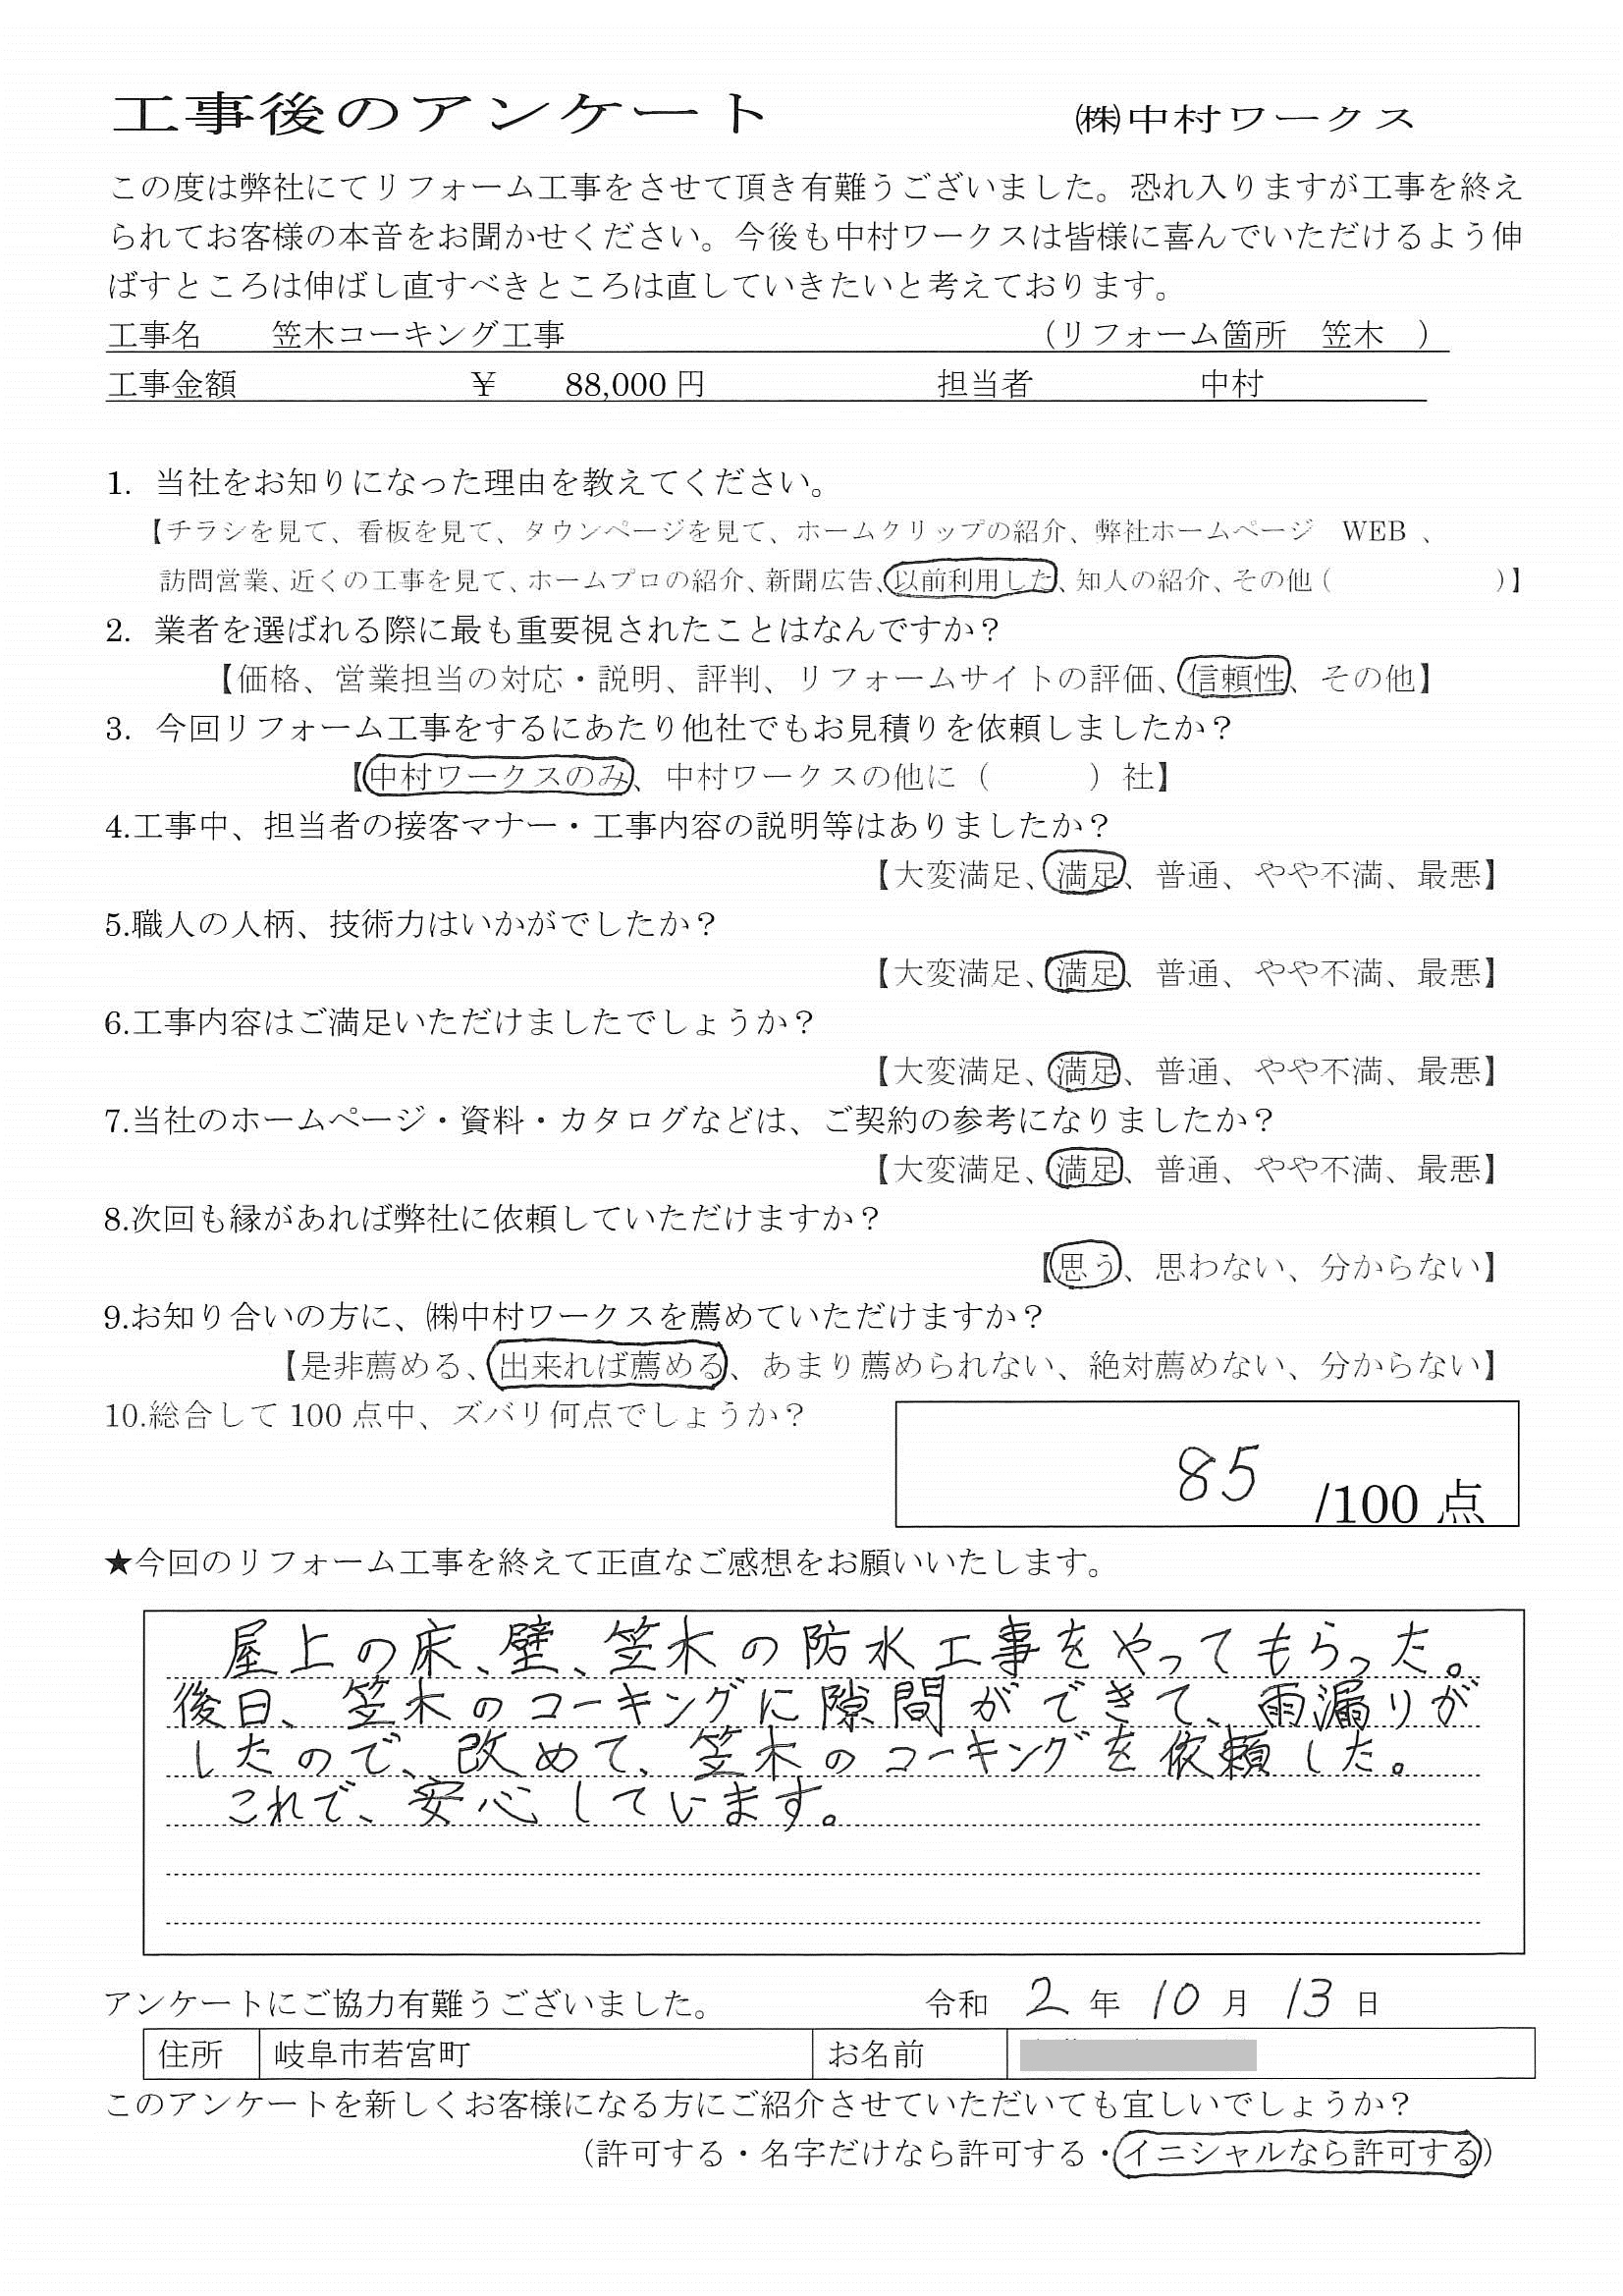 工事後のアンケート ㈱中村ワークス
この度は弊社にてリフォーム工事をさせて頂き有難うございました。恐れ入りますが工事を終え
られてお客様の本音をお聞かせください。今後も中村ワークスは皆様に喜んでいただけるよう伸
ばすところは伸ばし直すべきところは直していきたいと考えております。
工事名 笠木コーキング工事 (リフォーム箇所 笠木 )
工事金額 ￥ 88,000円 担当者 中村
1. 当社をお知りになった理由を教えてください。
【チラシを見て、看板を見て、タウンページを見て、ホームクリップの紹介、弊社ホームページ WEB 、
訪問営業、近くの工事を見て、ホームプロの紹介、新聞広告、以前利用した、知人の紹介、その他（ ）】
2. 業者を選ばれる際に最も重要視されたことはなんですか？
【価格、営業担当の対応・説明、評判、リフォームサイトの評価、信頼性、その他】
3. 今回リフォーム工事をするにあたり他社でもお見積りを依頼しましたか？
【中村ワークスのみ、中村ワークスの他に（ ）社】
4.工事中、担当者の接客マナー・工事内容の説明等はありましたか？
【大変満足、満足、普通、やや不満、最悪】
5.職人の人柄、技術力はいかがでしたか？
【大変満足、満足、普通、やや不満、最悪】
6.工事内容はご満足いただけましたでしょうか？
【大変満足、満足、普通、やや不満、最悪】
7.当社のホームページ・資料・カタログなどは、ご契約の参考になりましたか？
【大変満足、満足、普通、やや不満、最悪】
8.次回も縁があれば弊社に依頼していただけますか？
【思う、思わない、分からない】
9.お知り合いの方に、㈱中村ワークスを薦めていただけますか？
【是非薦める、出来れば薦める、あまり薦められない、絶対薦めない、分からない】
10.総合して 100 点中、ズバリ何点でしょうか？
85 /100 点
★今回のリフォーム工事を終えて正直なご感想をお願いいたします。
屋上の床、壁、笠木の防水工事をやってもらった。
後日、笠木のコーキングに隙間ができて、雨漏りが
したので、改めて、笠木のコーキングを依頼した。
これで、安心しています。
アンケートにご協力有難うございました。 令和 2 年 10 月 13 日
住所 岐阜市若宮町 お名前
このアンケートを新しくお客様になる方にご紹介させていただいても宜しいでしょうか？
(許可する・名字だけなら許可する・イニシャルなら許可する)